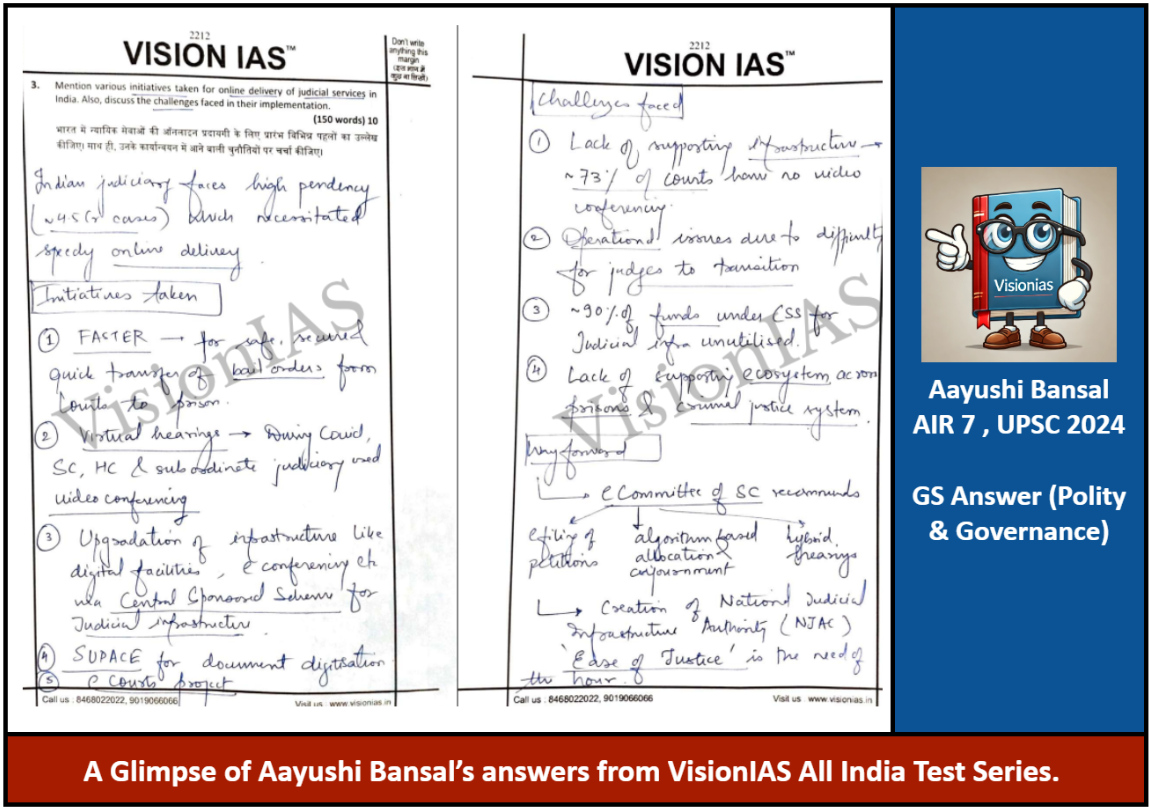 2212
VISION IAS™
Don't write
anything this
margin
(इस भाग में
कुछ ना लिखें)
3. Mention various initiatives taken for online delivery of judicial services in
India. Also, discuss the challenges faced in their implementation.
(150 words) 10
भारत में न्यायिक सेवाओं की ऑनलाइन प्रदायगी के लिए प्रारंभ विभिन्न पहलों का उल्लेख
कीजिए। साथ ही, उनके कार्यान्वयन में आने वाली चुनौतियों पर चर्चा कीजिए।
Indian judiciary faces high pendency
(~4.5 Cr cases) which necessitated
speedy online delivery.
Initiatives taken
① FASTER → for safe, secured
quick transfer of bail orders from
Courts to prison.
② Virtual hearings → During Covid,
SC, HC & subordinate judiciary used
video conferencing
③ Upgradation of infrastructure like
digital facilities, e conferencing etc
via Central Sponsored Scheme for
Judicial infrastructure.
④ SUPACE for document digitisation
⑤ e Courts project
Call us : 8468022022, 9019066066
Visit us : www.visionias.in
VisionIAS
2212
VISION IAS™
Challenges faced
① Lack of supporting infrastructure →
~73% of courts have no video
conferencing.
② Operational issues due to difficulty
for judges to transition
③ ~90% of funds under CSS for
Judicial infra unutilised.
④ Lack of supporting ecosystem across
prisons & criminal justice system.
Way forward
→ e Committee of SC recommends
efiling of petitions
algorithm based allocation & adjournment
hybrid hearings
→ Creation of National Judicial
Infrastructure Authority (NJAC)
'Ease of Justice' is the need of
the hour.
Call us : 8468022022, 9019066066
Visit us : www.visionias.in
VisionIAS
Visionias
Aayushi Bansal
AIR 7 , UPSC 2024
GS Answer (Polity
& Governance)
A Glimpse of Aayushi Bansal's answers from VisionIAS All India Test Series.